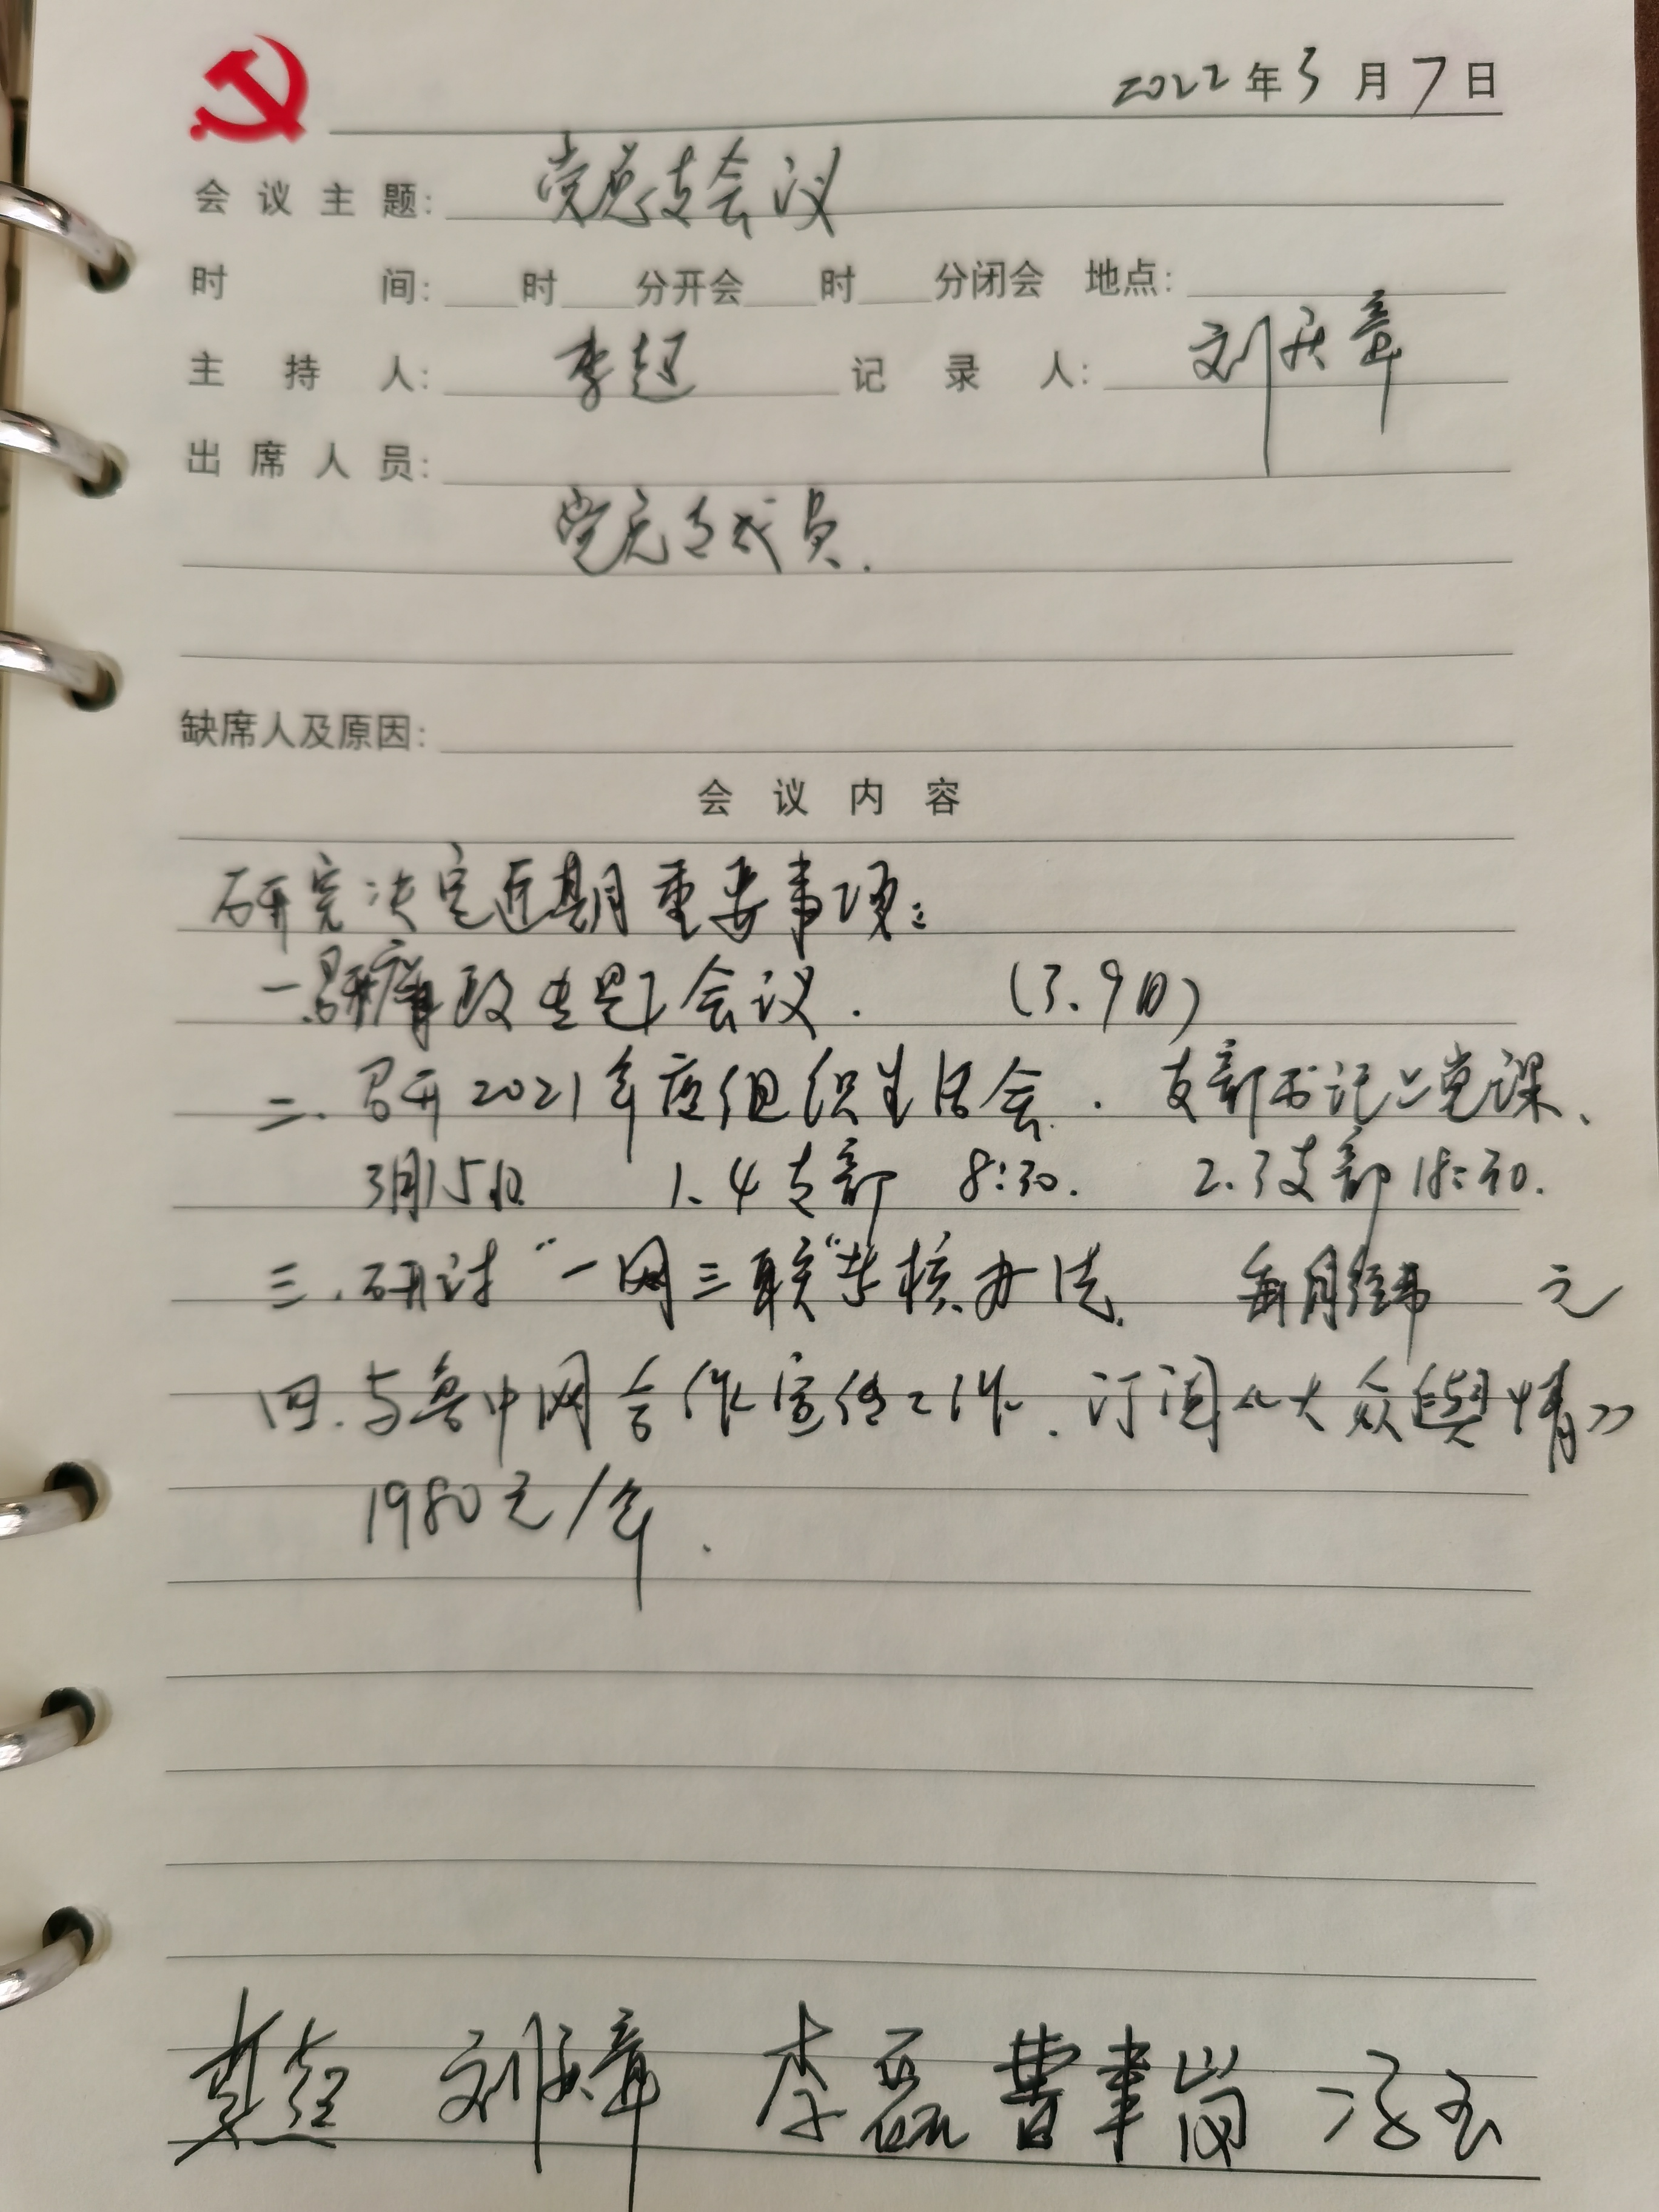 2022年3月7日
会议主题: 党总支会议
时间: 时 分开会 时 分闭会 地点:
主持人: 李超 记录人: 刘庆章
出席人员:
党总支成员.
缺席人及原因:
会议内容
研究决定近期重要事项:
一.召开廉政专题会议. (3.9日)
二.召开2021年度组织生活会. 支部书记上党课、
3月15日 1.4支部 8:30. 2.3支部 18:30.
三.研讨"一网三联"考核办法. 每月经费 元
四.与鲁中网合作宣传工作.订阅《大众舆情》
1980元/年.
李超 刘庆章 李磊 曹聿岗